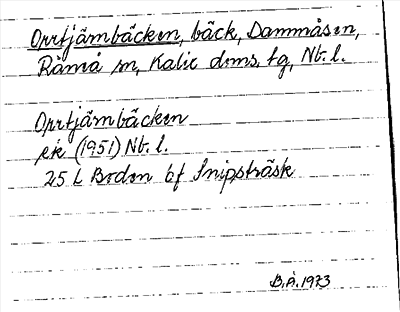 Orrtjämbäcken, bäck, Dammåsen,
Råmå sn, Kalix doms. tg, Nb. l.
Orrtjämbäcken
ek (1951) Nb. l.
25 L Boden bf Snipsträsk
B.Å. 1973